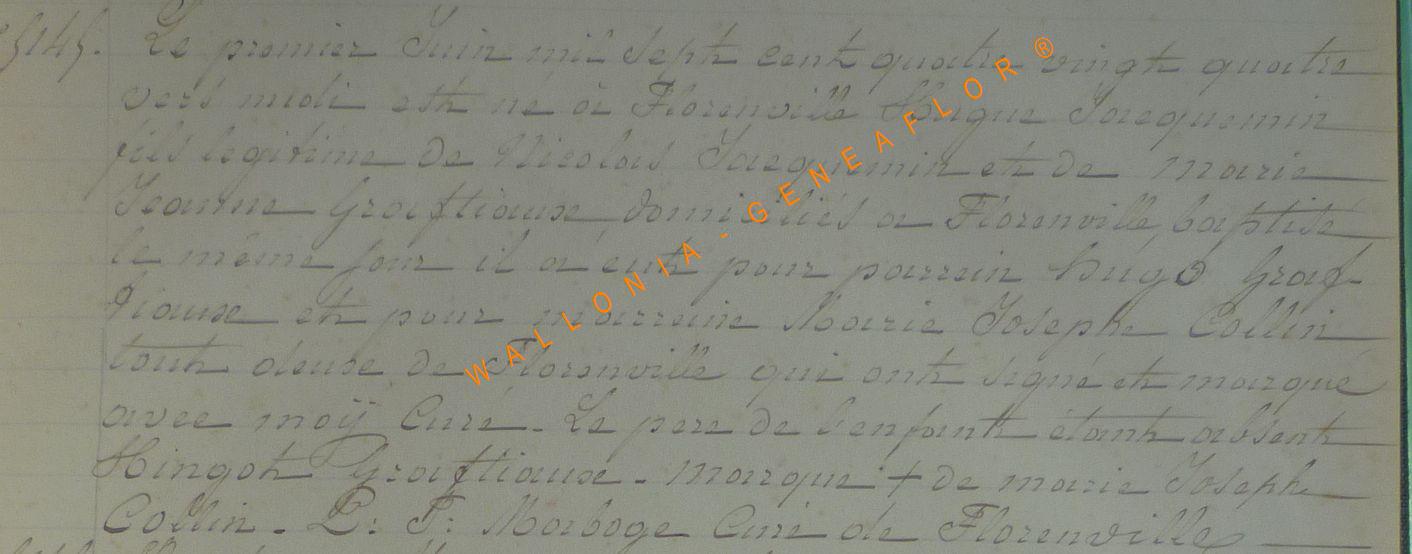 5145. Le premier Juin mil sept cent quatre vingt quatre
vers midi est né à Florenville Hugue Jacquemin
fils legitime de Nicolas Jacquemin et de marie
Jeanne Graftiaux, domiciliés a Florenville, baptisé
le même jour il a eut pour parrain Hugo Graf-
tiaux et pour marraine Marie Josephe Collin
tout deux de Florenville qui ont signé et marqué
avec moÿ Curé. Le pere de l'enfant étant absent
Hingot Graftiaux. marque + de marie Josephe
Collin. L: T: Marboge Curé de Florenville
WALLONIA - GENEAFLOR ®